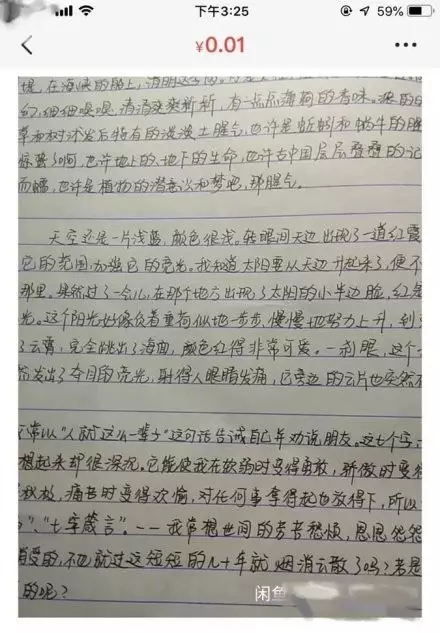 下午3:25
59%
¥0.01
境,在海
幻,细细嗅嗅,清清爽爽新新,有一点点薄荷的香味。
草和树木发后特有的淡淡土腥气,也许是蚯蚓和蜗牛的腥
惊蛰了啊,也许地上的地下的生命,也许古中国层层叠叠的记
而蠕,也许是植物的潜意识和梦吧,那腥气。
天空还是一片浅蓝,颜色很浅。转眼间天边出现了一道红霞
它的范围,加强它的亮光。我知道太阳要从天边升起来了,便不
那里。果然过了一会儿,在那个地方出现了太阳的小半边脸,红是
光。这个阳光好像负着重荷似地一步步、慢慢地努力上升,到
了云霄,完全跳出了海面,颜色红得非常可爱。一刹眼,这个
而发出了夺目的亮光,射得人眼睛发痛,它旁边的云片也突然
常以“人就这么一辈子”这句话告诫自己并劝说朋友。这七个字,
想起来却很深沉。它能使我在软弱时变得勇敢,骄傲时变得
极,痛苦时变得欢愉,对任何事拿得起也放得下,所以
”、“七字箴言”。——我常想世间的劳苦愁烦、恩恩怨怨
消受的,不也就过这短短的几十年就烟消云散了吗?若是
的呢?
闲鱼